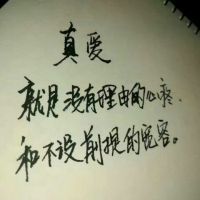 真爱
就是没有理由的心疼.
和不设前提的宽容。